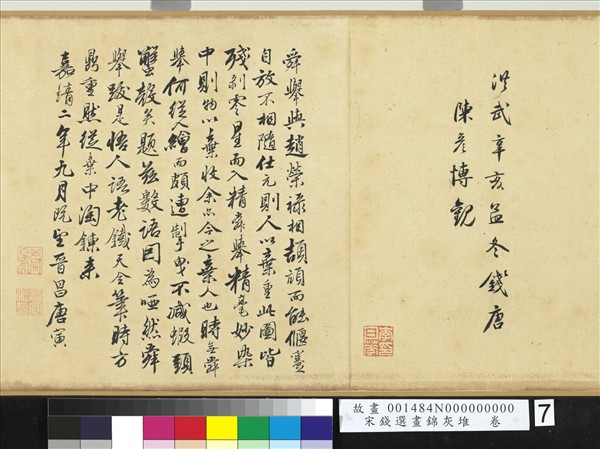 洪武辛亥孟冬錢唐
陳彥博觀
舜舉與趙榮祿相頡頏而能偃蹇
自放不相隨仕元則人以棄重此圖皆
殘剥零星而入精舜舉精毫妙染
中則物以棄收余亦今之棄人也時無舜
舉何從入繪而頗遭掣曳不減蝦頭
蟹殼矣題茲數語因為啞然舜
舉跋是悟人語老鐵天全筆時方
鼎重然從棄中淘鍊來
嘉靖二年九月既望晉昌唐寅
故畫 001484N000000000
宋錢選畫錦灰堆 卷
7